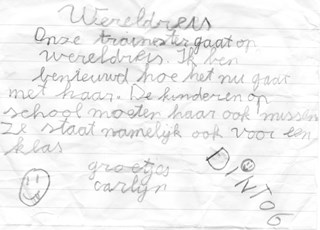 Wereldreis
Onze trainester gaat op
wereldreis. Ik ben
benieuwd hoe het nu gaat
met haar. De kinderen op
school moeten haar ook missen
Ze staat namelijk ook voor een
klas
groetjes
carlijn
DiNTO6